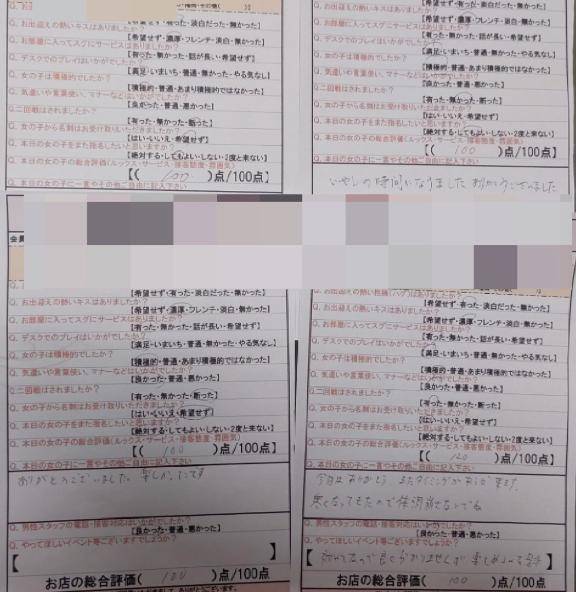 【希望せず・濃厚・フレンチ・淡白・無かった】
Q. お部屋に入ってスグにサービスはありましたか?
【有った・無かった・話が長い・希望せず】
Q. デスクでのプレイはいかがでしたか?
【満足・いまいち・普通・無かった・やる気なし】
Q. 女の子は積極的でしたか?
【積極的・普通・あまり積極的ではなかった】
Q. 気遣いや言葉使い、マナーなどはいかがでしたか?
【良かった・普通・悪かった】
Q. 二回戦はされましたか?
【有った・無かった・断った】
Q. 女の子から名刺はお受け取りいただきましたか?
【はい・いいえ・希望せず】
Q. 本日の女の子をまた指名したいと思いますか?
【絶対する・してもよい・しない・2度と来ない】
Q. 本日の女の子の総合評価(ルックス・サービス・接客態度・雰囲気)
【( 100 )点/100点】
Q. 本日の女の子に一言やその他ご自由に記入下さい
Q. お出迎えの熱いキスはありましたか?
【希望せず・濃厚・フレンチ・淡白・無かった】
Q. お部屋に入ってスグにサービスはありましたか?
【有った・無かった・話が長い・希望せず】
Q. デスクでのプレイはいかがでしたか?
【満足・いまいち・普通・無かった・やる気なし】
Q. 女の子は積極的でしたか?
【積極的・普通・あまり積極的ではなかった】
Q. 気遣いや言葉使い、マナーなどはいかがでしたか?
【良かった・普通・悪かった】
Q. 二回戦はされましたか?
【有った・無かった・断った】
Q. 女の子から名刺はお受け取りいただきましたか?
【はい・いいえ・希望せず】
Q. 本日の女の子をまた指名したいと思いますか?
【絶対する・してもよい・しない・2度と来ない】
Q. 本日の女の子の総合評価(ルックス・サービス・接客態度・雰囲気)
【( 100 )点/100点】
Q. 本日の女の子に一言やその他ご自由に記入下さい
いやしの時間になりました ありがとうございました
会員
【希望せず・有った・淡白だった・無かった】
Q. お出迎えの熱いキスはありましたか?
【希望せず・濃厚・フレンチ・淡白・無かった】
Q. お部屋に入ってスグにサービスはありましたか?
【有った・無かった・話が長い・希望せず】
Q. デスクでのプレイはいかがでしたか?
【満足・いまいち・普通・無かった・やる気なし】
Q. 女の子は積極的でしたか?
【積極的・普通・あまり積極的ではなかった】
Q. 気遣いや言葉使い、マナーなどはいかがでしたか?
【良かった・普通・悪かった】
Q. 二回戦はされましたか?
【有った・無かった・断った】
Q. 女の子から名刺はお受け取りいただきましたか?
【はい・いいえ・希望せず】
Q. 本日の女の子をまた指名したいと思いますか?
【絶対する・してもよい・しない・2度と来ない】
Q. 本日の女の子の総合評価(ルックス・サービス・接客態度・雰囲気)
【( 100 )点/100点】
Q. 本日の女の子に一言やその他ご自由に記入下さい
ありがとうございました 楽しかったです
Q. 男性スタッフの電話・接客対応はいかがでしたか?
【良かった・普通・悪かった】
Q. やってほしいイベント等ございますでしょうか?
【
お店の総合評価( 100 )点/100点
Q. お出迎えの熱い抱擁(ハグ)はありましたか?
【希望せず・有った・淡白だった・無かった】
Q. お出迎えの熱いキスはありましたか?
【希望せず・濃厚・フレンチ・淡白・無かった】
Q. お部屋に入ってスグにサービスはありましたか?
【有った・無かった・話が長い・希望せず】
Q. デスクでのプレイはいかがでしたか?
【満足・いまいち・普通・無かった・やる気なし】
Q. 女の子は積極的でしたか?
【積極的・普通・あまり積極的ではなかった】
Q. 気遣いや言葉使い、マナーなどはいかがでしたか?
【良かった・普通・悪かった】
Q. 二回戦はされましたか?
【有った・無かった・断った】
Q. 女の子から名刺はお受け取りいただきましたか?
【はい・いいえ・希望せず】
Q. 本日の女の子をまた指名したいと思いますか?
【絶対する・してもよい・しない・2度と来ない】
Q. 本日の女の子の総合評価(ルックス・サービス・接客態度・雰囲気)
【( 120 )点/100点】
Q. 本日の女の子に一言やその他ご自由に記入下さい
今日はありがとう
寒くなってきたので体調崩さないでね
Q. 男性スタッフの電話・接客対応はいかがでしたか?
【良かった・普通・悪かった】
Q. やってほしいイベント等ございますでしょうか?
お店の総合評価( 100 )点/100点